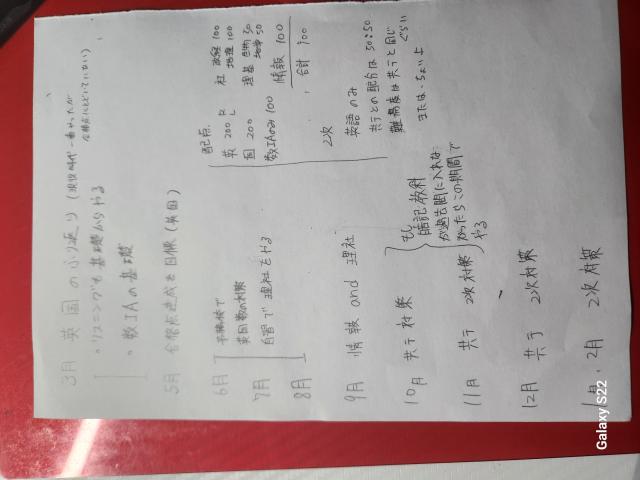 3月 英国のふり返り (現役時代一番やったが
合格点にとどいていない)
・リスニングも基礎からやる
・数IAの基礎
5月 合格点達成を目標 (英国)
6月
7月
8月
予備校で
英国数の対策
自習で理社をやる
9月 情報 and 理社
10月 共テ対策
11月 共テ 2次対策
12月 共テ 2次対策
1月、2月 2次対策
もし
暗記教科
が過去問に入れな
かったらこの期間で
やる
配点
英 200 R L
国 200
数IAのみ 100
社 政経 100
地理 100
理基 生物 50
地学 50
情報 100
合計 900
2次
英語のみ
共テとの配分は 50:50
難易度は共テと同じ
ぐらい
または、ちょい上
Galaxy S22